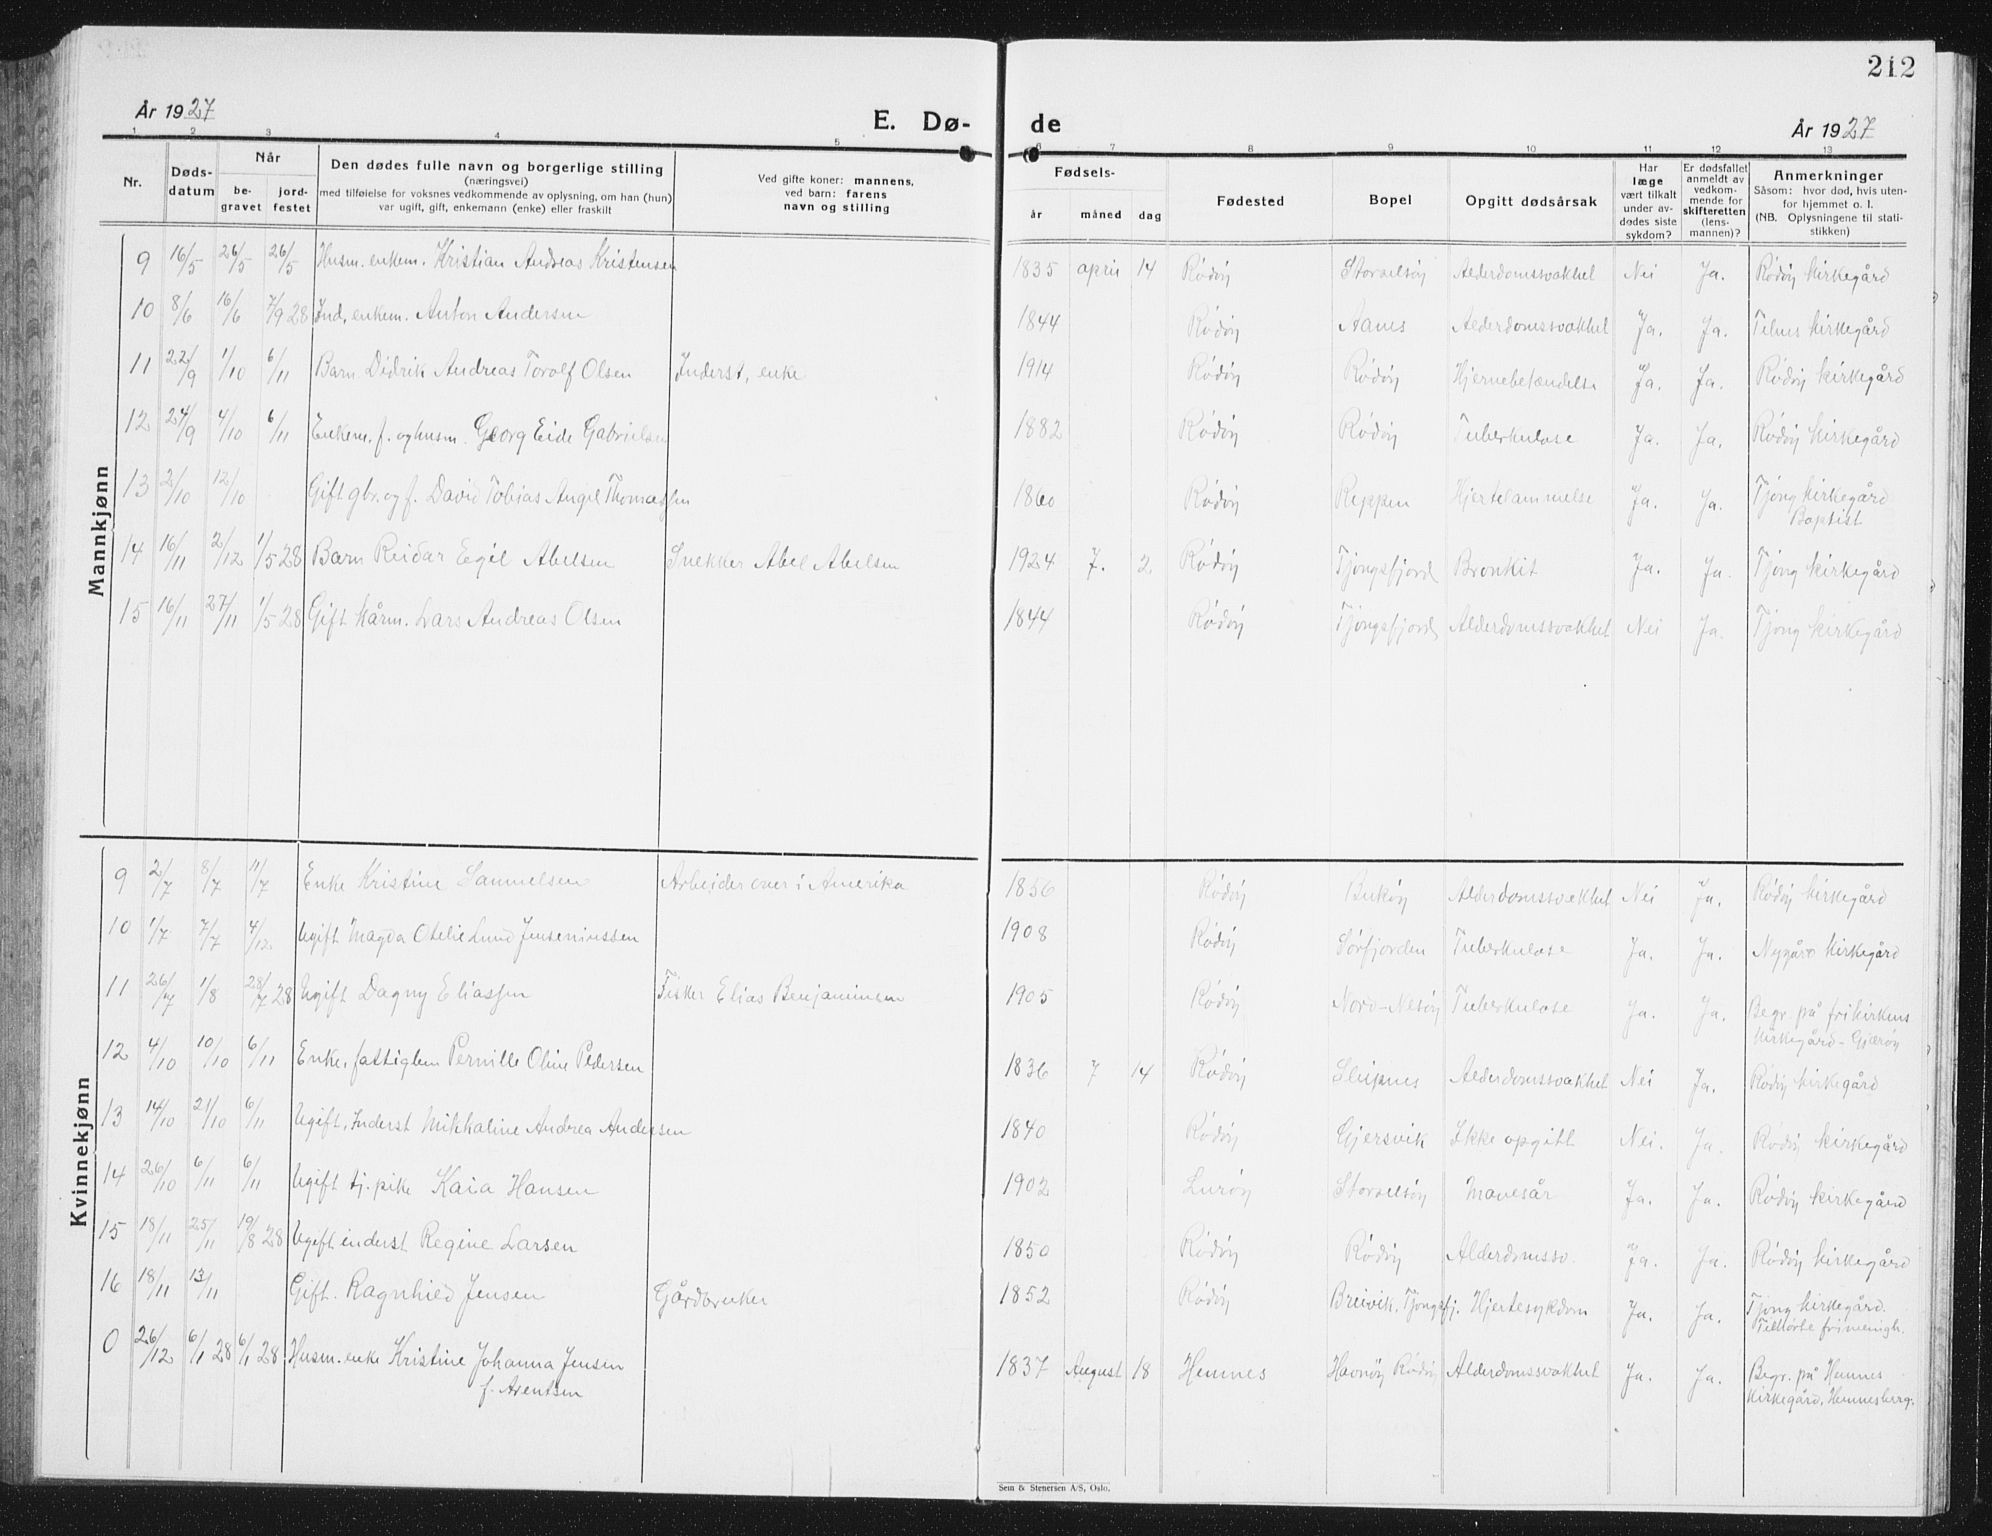 212
År 1927
E. Dø- de
År 1927
1 2 3 4 5 6 7 8 9 10 11 12 13
Nr.
Døds-
datum
Når
be-
gravet
jord-
festet
Den dødes fulle navn og borgerlige stilling
(næringsvei)
med tilføielse for voksnes vedkommende av oplysning, om han (hun)
var ugift, gift, enkemann (enke) eller fraskilt
Ved gifte koner: mannens,
ved barn: farens
navn og stilling
Fødsels-
år måned dag
Fødested
Bopel
Opgitt dødsårsak
Har
læge
vært tilkalt
under av-
dødes siste
sykdom?
Er dødsfallet
anmeldt av
vedkom-
mende for
skifteretten
(lens-
mannen)?
Anmerkninger
Såsom: hvor død, hvis uten-
for hjemmet o. l.
(NB. Oplysningene til stati-
stikken)
Mannkjønn
9 16/5 26/5 26/5 Husm. enkem. Kristian Andreas Kristensen 1835 april 14 Rødøy Storselsøy Alderdomssvakhet Nei Ja. Rødøy kirkegård
10 8/6 16/6 7/9 28 Ind, enkem. Anton Andersen 1844 Rødøy Aanes Alderdomssvakhet Ja. Ja. Telnes kirkegård
11 22/9 1/10 6/11 Barn Didrik Andreas Torolf Olsen Inderst, enke 1914 Rødøy Rødøy Hjernebetændelse Ja. Ja. Rødøy kirkegård
12 24/9 4/10 6/11 Enkem. f. og husm. Georg Eide Gabrielsen 1882 Rødøy Rødøy Tuberkulose Ja. Ja. Rødøy kirkegård
13 2/10 12/10 Gift gbr. og f. David Tobias Angel Thomassen 1860 Rødøy Reppen Hjertelammelse Ja. Ja. Tjong kirkegård
Baptist
14 16/11 2/12 1/5 28 Barn Reidar Egil Abelsen Snekker Abel Abelsen 1924 7. 2. Rødøy Tjongsfjord Bronkit Ja. Ja. Tjong kirkegård
15 16/11 27/11 1/5 28 Gift kårm. Lars Andreas Olsen 1844 Rødøy Tjongsfjord Alderdomssvakhet Nei Ja. Tjong kirkegård
Kvinnekjønn
9 2/7 8/7 11/7 Enke Kristine Samuelsen Arbeider over i Amerika 1856 Rødøy Bukøy Alderdomssvakhet Nei Ja. Rødøy kirkegård
10 1/7 7/7 4/12. Ugift Magda Otelie Lund 1908 Rødøy Sørfjorden Tuberkulose Ja. Ja. Nygård kirkegård
11 26/7 1/8 28/7 28 Ugift Dagny Eliassen Fisker Elias Benjaminsen 1905 Rødøy Nord-Nesøy Tuberkulose Ja. Ja. Begr. på frikirkens
kirkegård - Gjærøy
12 4/10 10/10 6/11 Enke, fattiglem Pernille Oline Pedersen 1836 7 14 Rødøy Sleipnes Alderdomssvakhet Nei Ja. Rødøy kirkegård
13 14/10 21/10 6/11 Ugift, Inderst Mikkaline Andrea Andersen 1840 Rødøy Gjersvik Ikke opgitt Nei. Ja. Rødøy kirkegård
14 26/10 6/11 6/11 Ugift tj. pike Kaia Hansen 1902 Lurøy Storselsøy Mavesår Ja. Ja. Rødøy kirkegård
15 18/11 25/11 19/8 28 Ugift inderst Regine Larsen 1850 Rødøy Rødøy Alderdomssv. Ja. Ja. Rødøy kirkegård
16 18/11 13/11 Gift. Ragnhild Jensen Gårdbruker 1852 Rødøy Breivik, Tjongsfj. Hjertesykdom Ja. Ja. Tjong kirkegård.
Tilhørte frimenigh.
0 26/12 6/1 28 6/1 28 Husm. enke Kristine Johanna Jensen 1837 August 18 Hemnes Havnøy Rødøy Alderdomssvakhet Ja. Ja. Begr. på Hemnes
f. Arentsen kirkegård, Hemnesberg.
Sem & Stenersen A/S, Oslo.